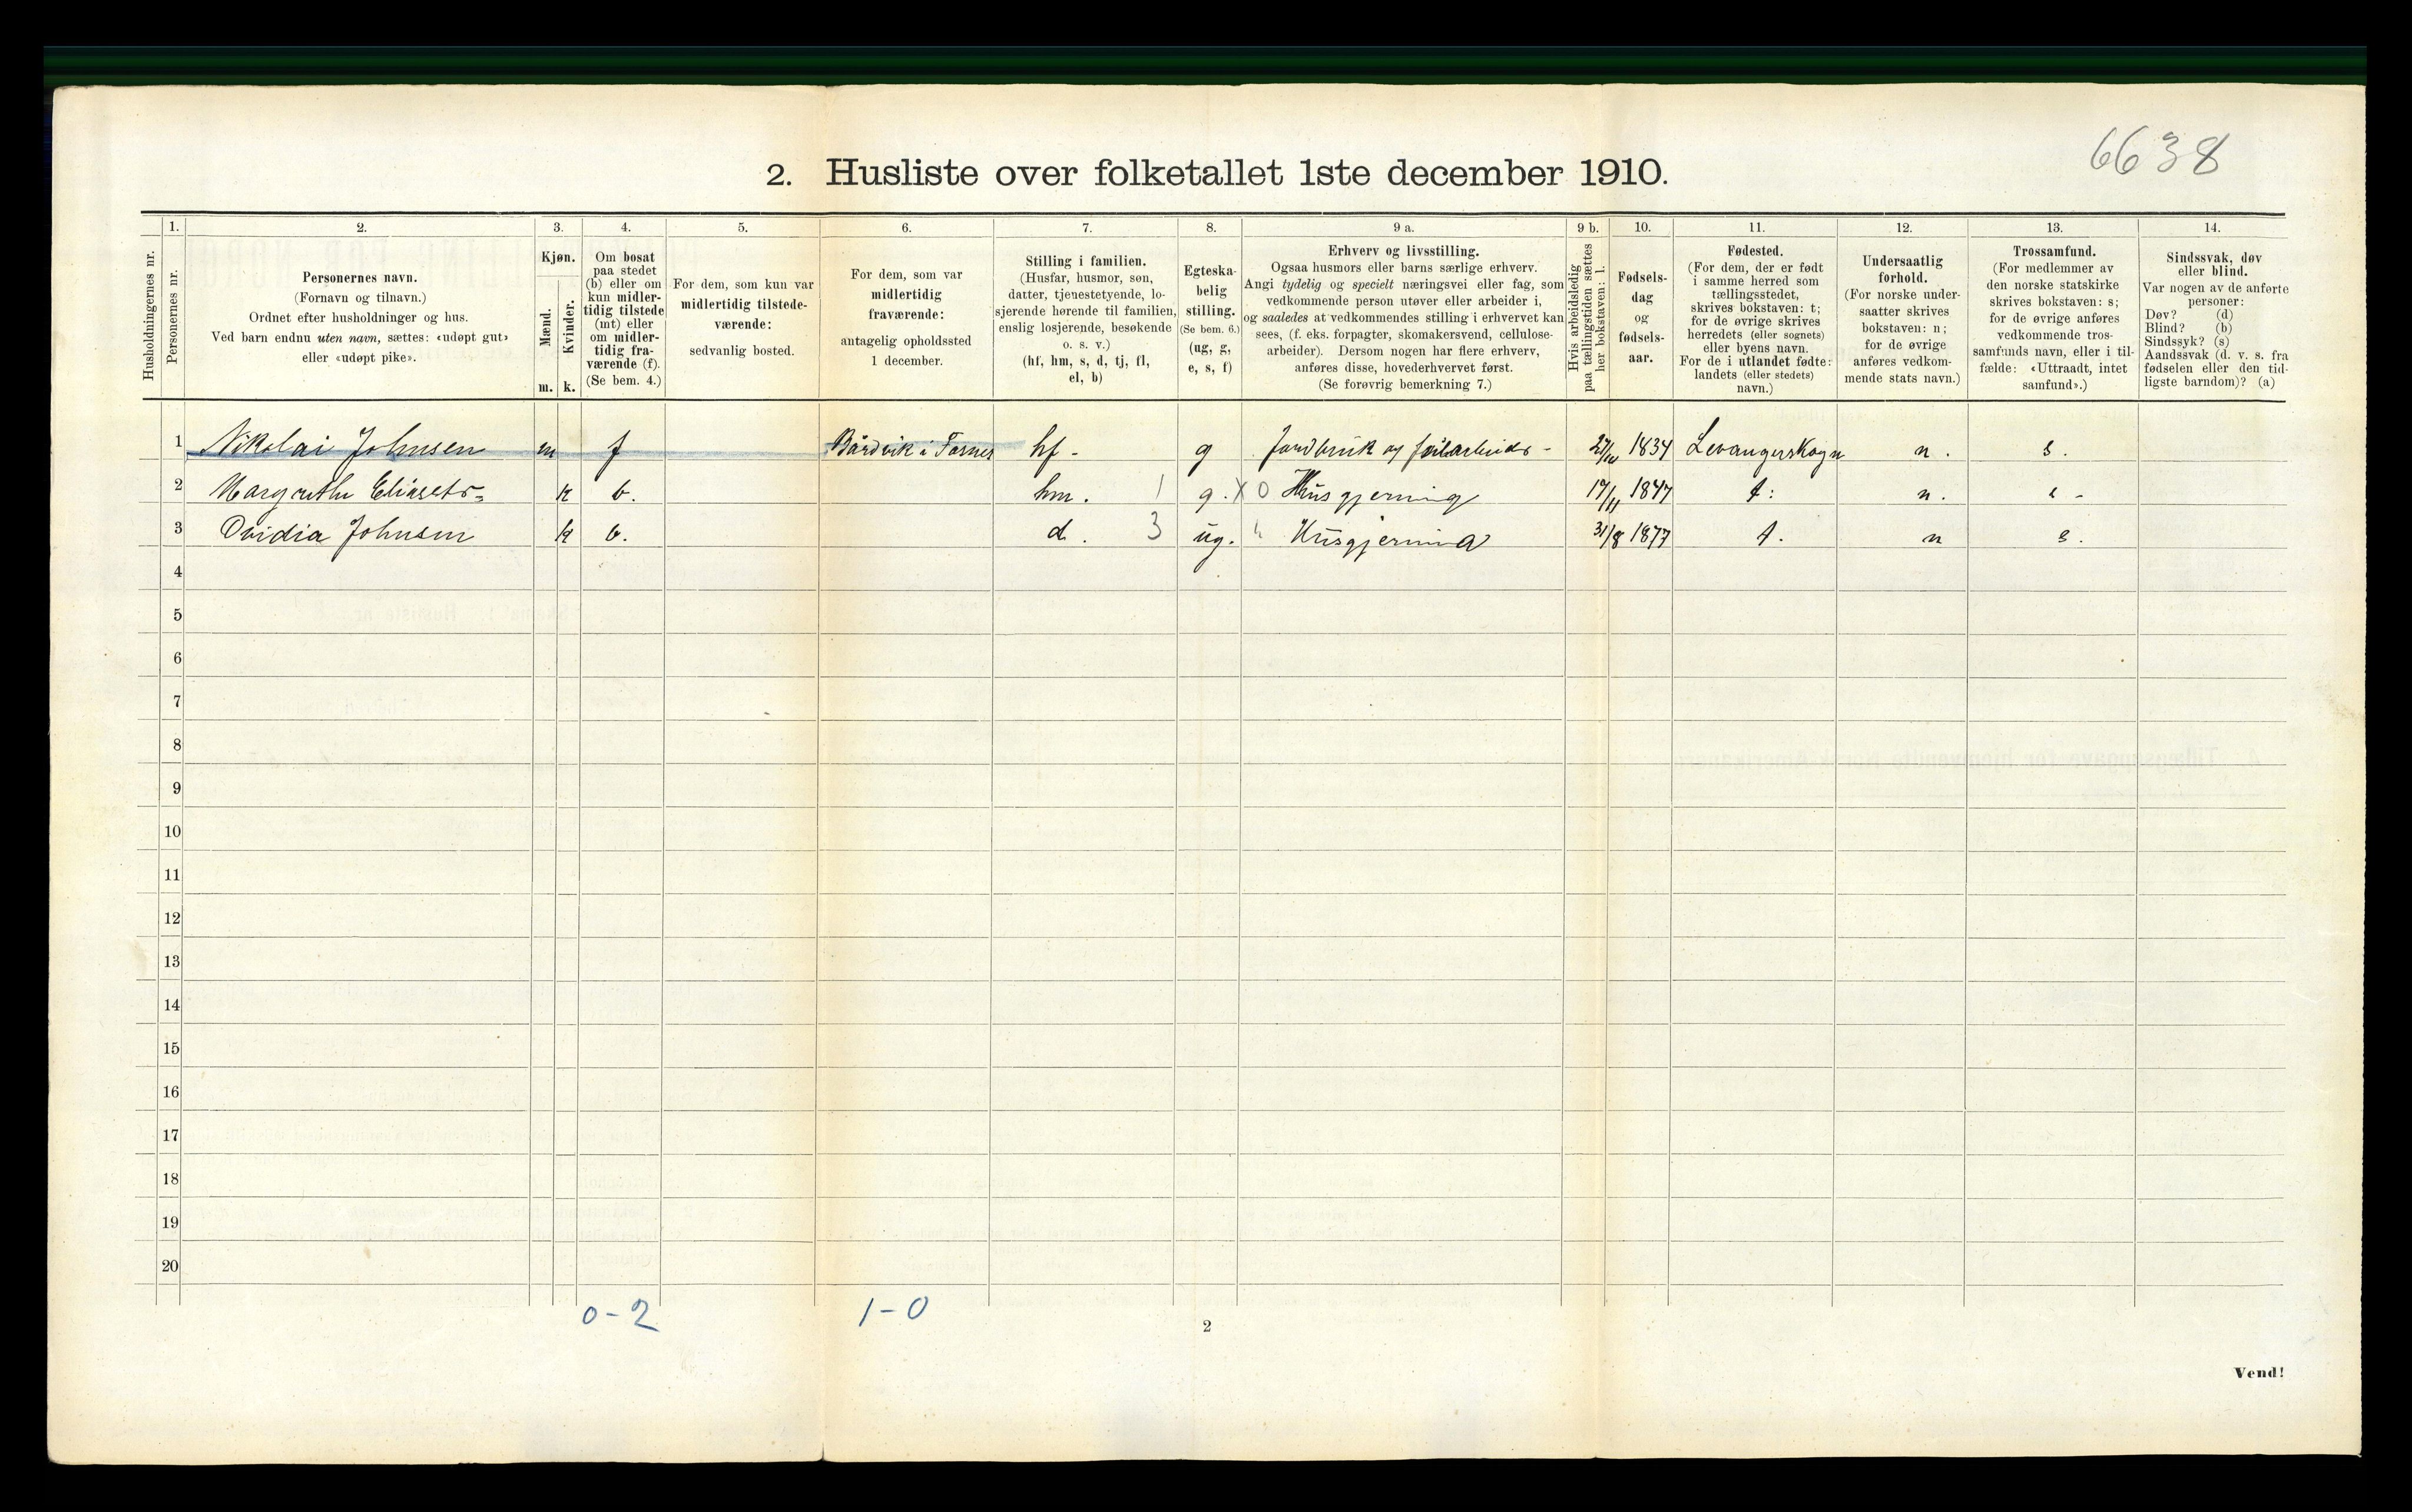 6638
2. Husliste over folketallet 1ste december 1910.
Husholdningernes nr.
1.
Personernes nr.
2.
Personernes navn.
(Fornavn og tilnavn.)
Ordnet efter husholdninger og hus.
Ved barn endnu uten navn, sættes: «udøpt gut»
eller «udøpt pike».
3.
Kjøn.
Mænd.
Kvinder.
m. k.
4.
Om bosat
paa stedet
(b) eller om
kun midler-
tidig tilstede
(mt) eller
om midler-
tidig fra-
værende (f).
(Se bem. 4.)
5.
For dem, som kun var
midlertidig tilstede-
værende:
sedvanlig bosted.
6.
For dem, som var
midlertidig
fraværende:
antagelig opholdssted
1 december.
7.
Stilling i familien.
(Husfar, husmor, søn,
datter, tjenestetyende, lo-
sjerende hørende til familien,
enslig losjerende, besøkende
o. s. v.)
(hf, hm, s, d, tj, fl,
el, b)
8.
Egteska-
belig
stilling.
(Se bem. 6.)
(ug, g,
e, s, f)
9 a.
Erhverv og livsstilling.
Ogsaa husmors eller barns særlige erhverv.
Angi tydelig og specielt næringsvei eller fag, som
vedkommende person utøver eller arbeider i,
og saaledes at vedkommendes stilling i erhvervet kan
sees, (f. eks. forpagter, skomakersvend, cellulose-
arbeider). Dersom nogen har flere erhverv,
anføres disse, hovederhvervet først.
(Se forøvrig bemerkning 7.)
9 b.
Hvis arbeidsledig
paa tællingstiden sættes
her bokstaven: l.
10.
Fødsels-
dag
og
fødsels-
aar.
11.
Fødested.
(For dem, der er født
i samme herred som
tællingsstedet,
skrives bokstaven: t;
for de øvrige skrives
herredets (eller sognets)
eller byens navn.
For de i utlandet fødte:
landets (eller stedets)
navn.)
12.
Undersaatlig
forhold.
(For norske under-
saatter skrives
bokstaven: n;
for de øvrige
anføres vedkom-
mende stats navn.)
13.
Trossamfund.
(For medlemmer av
den norske statskirke
skrives bokstaven: s;
for de øvrige anføres
vedkommende tros-
samfunds navn, eller i til-
fælde: «Uttraadt, intet
samfund».)
14.
Sindssvak, døv
eller blind.
Var nogen av de anførte
personer:
Døv? (d)
Blind? (b)
Sindssyk? (s)
Aandssvak (d. v. s. fra
fødselen eller den tid-
ligste barndom)? (a)
1 Nikolai Johnsen m f Bårdvik i Fosnes hf - g Jordbruk og 1834 n. s.
2 Margrethe k b. hm. 1 g. X 0 Husgjerning 1847 t: n. s -
3 Ovidia Johnsen k b. d. 3 ug. Husgjerning 31/8 1877 t. n s.
4
5
6
7
8
9
10
11
12
13
14
15
16
17
18
19
20
0-2 1-0
2
Vend!